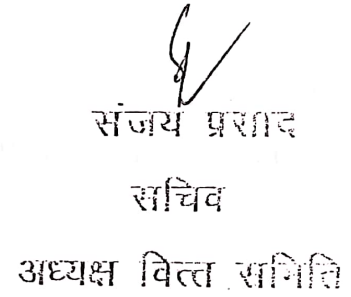 संजय प्रसाद
सचिव
अध्यक्ष वित्त समिति